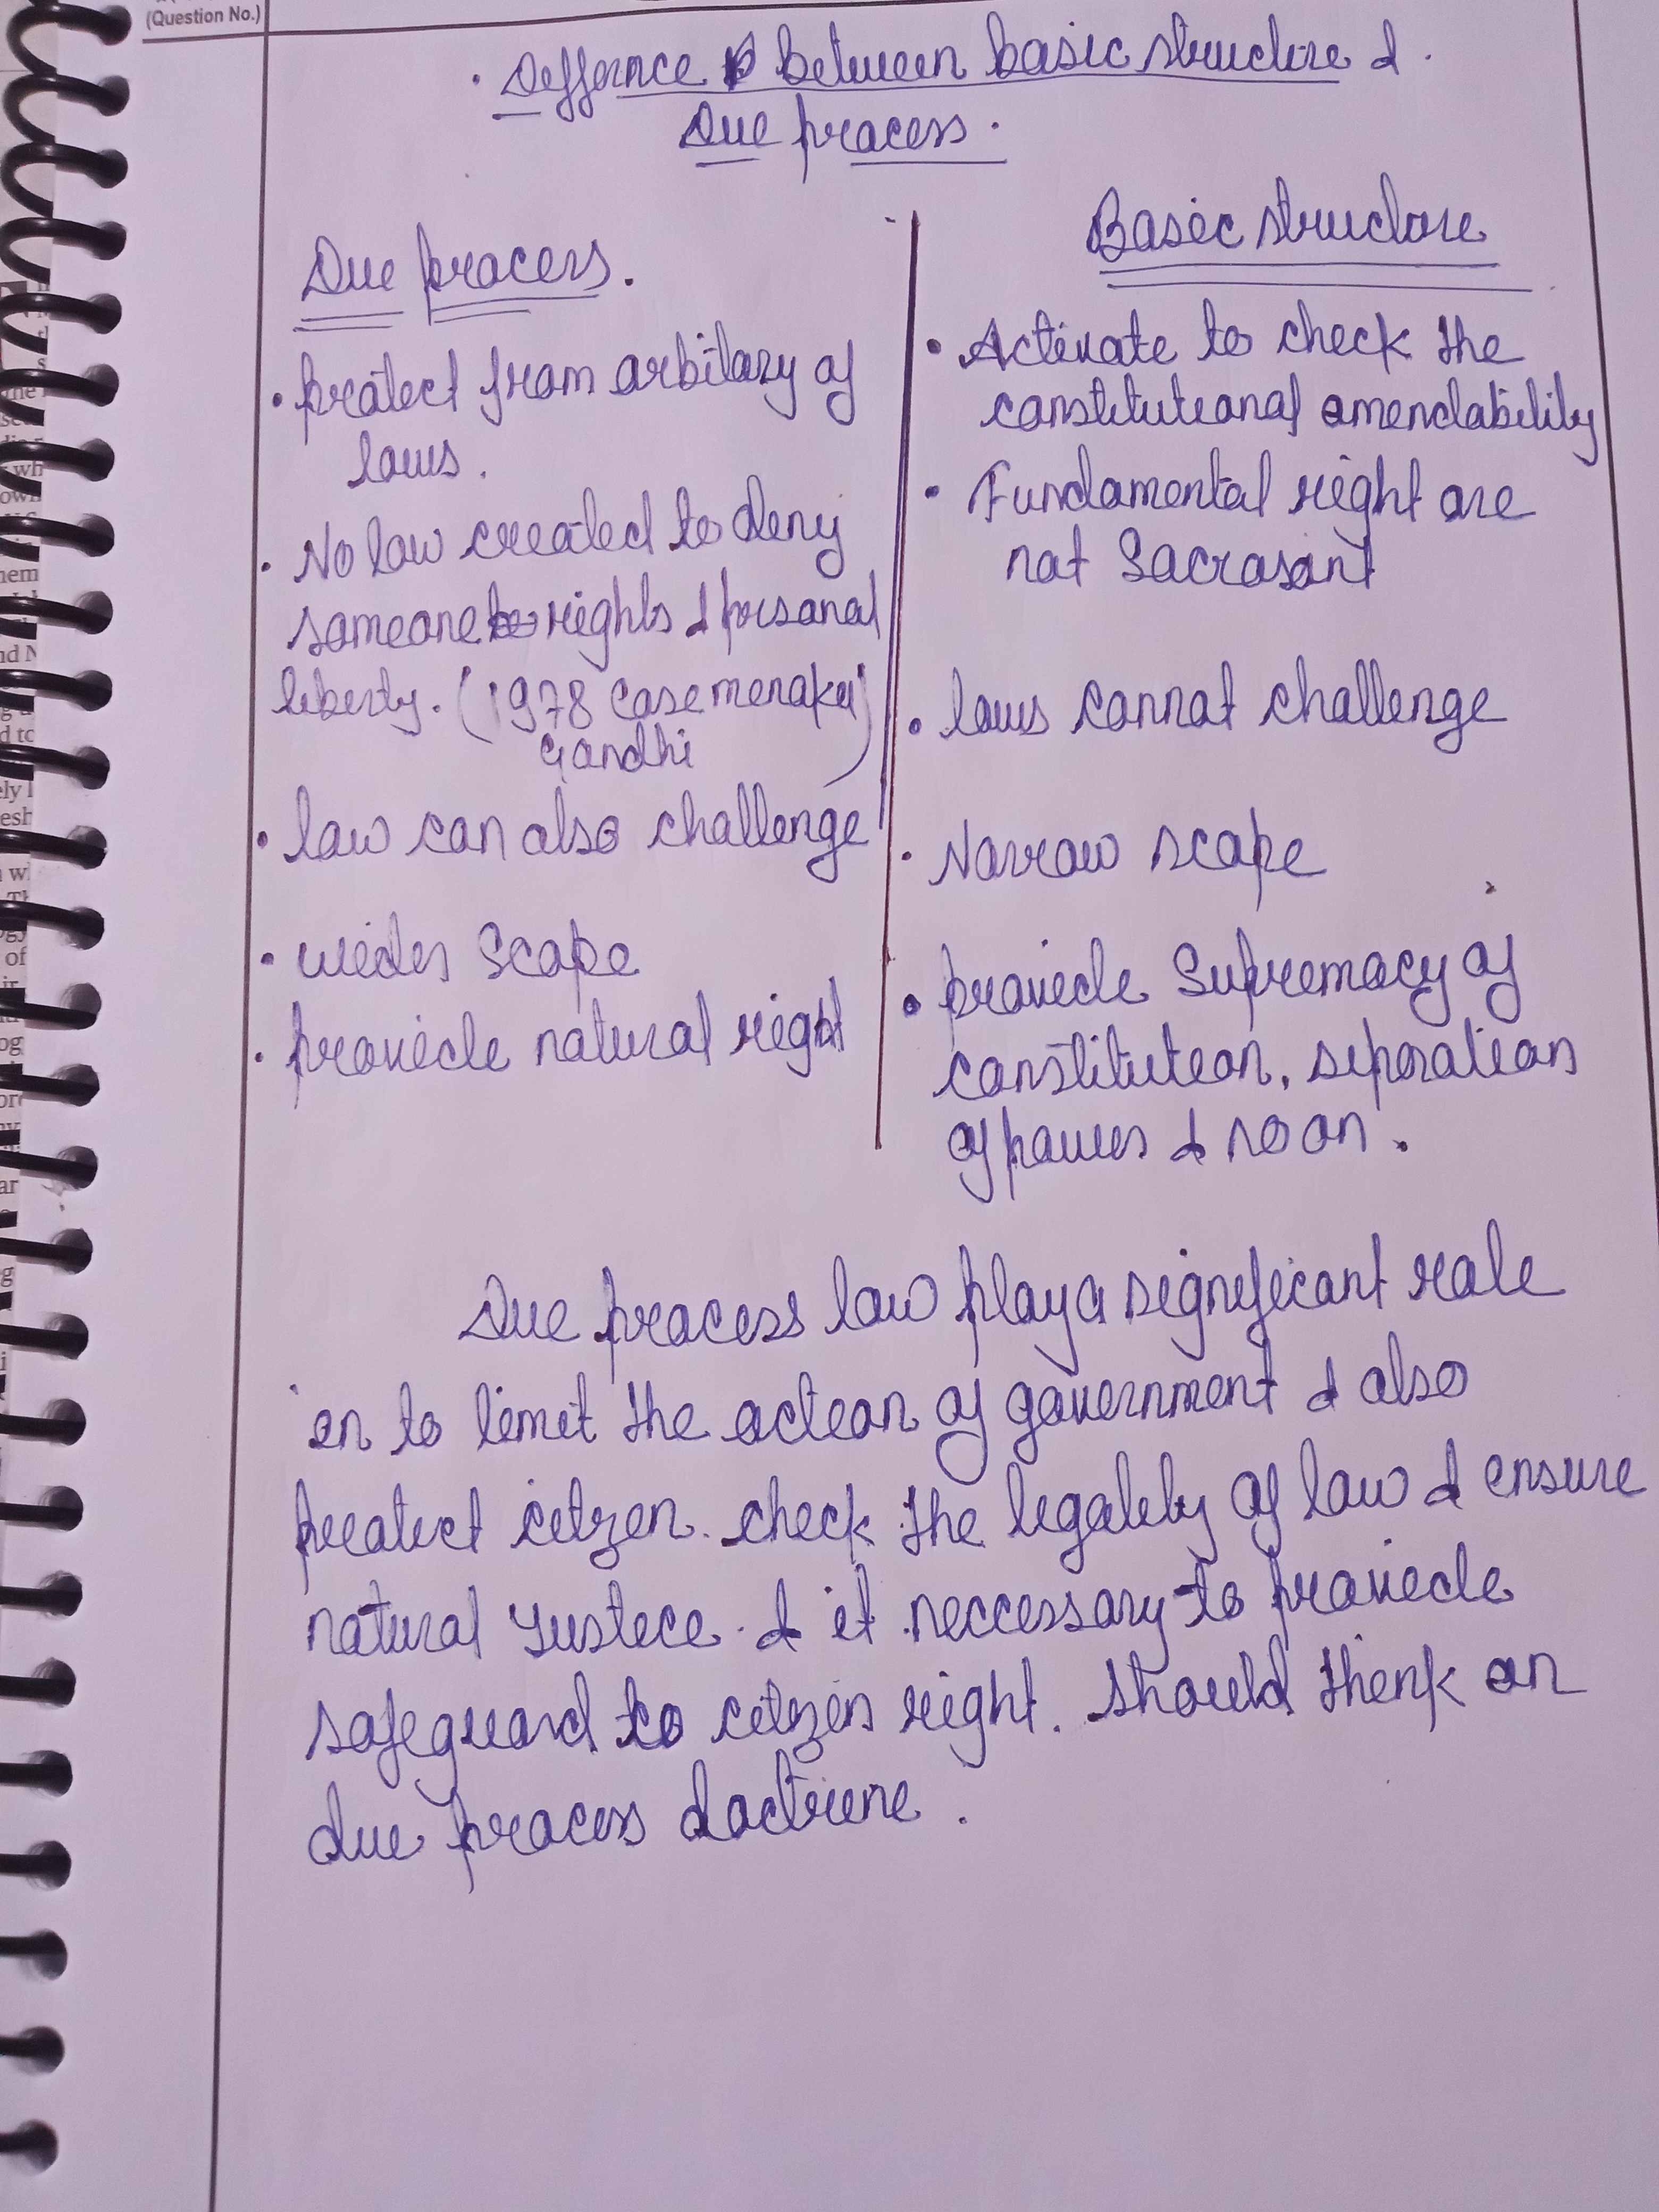 (Question No.)
Defference between basic structure &
Due process.
Due process.
• protect from arbitary of
laws.
• No law created to deny
someone rights & personal
liberty. (1978 case menaka
Gandhi)
• law can also challenge
• wider scope
• provide natural right
Basic structure
• Activate to check the
constitutional amendability
• Fundamental right are
not Sacrosant
• laws cannot challenge
• Narrow scope
• provide Supremacy of
constitution, seperation
of power & so on.
Due process law play a significant role
in to limit the action of government & also
protect citizen. check the legality of law & ensure
natural justice. & it neccessary to provide
safeguard to citizen right. should think on
due process doctrine.